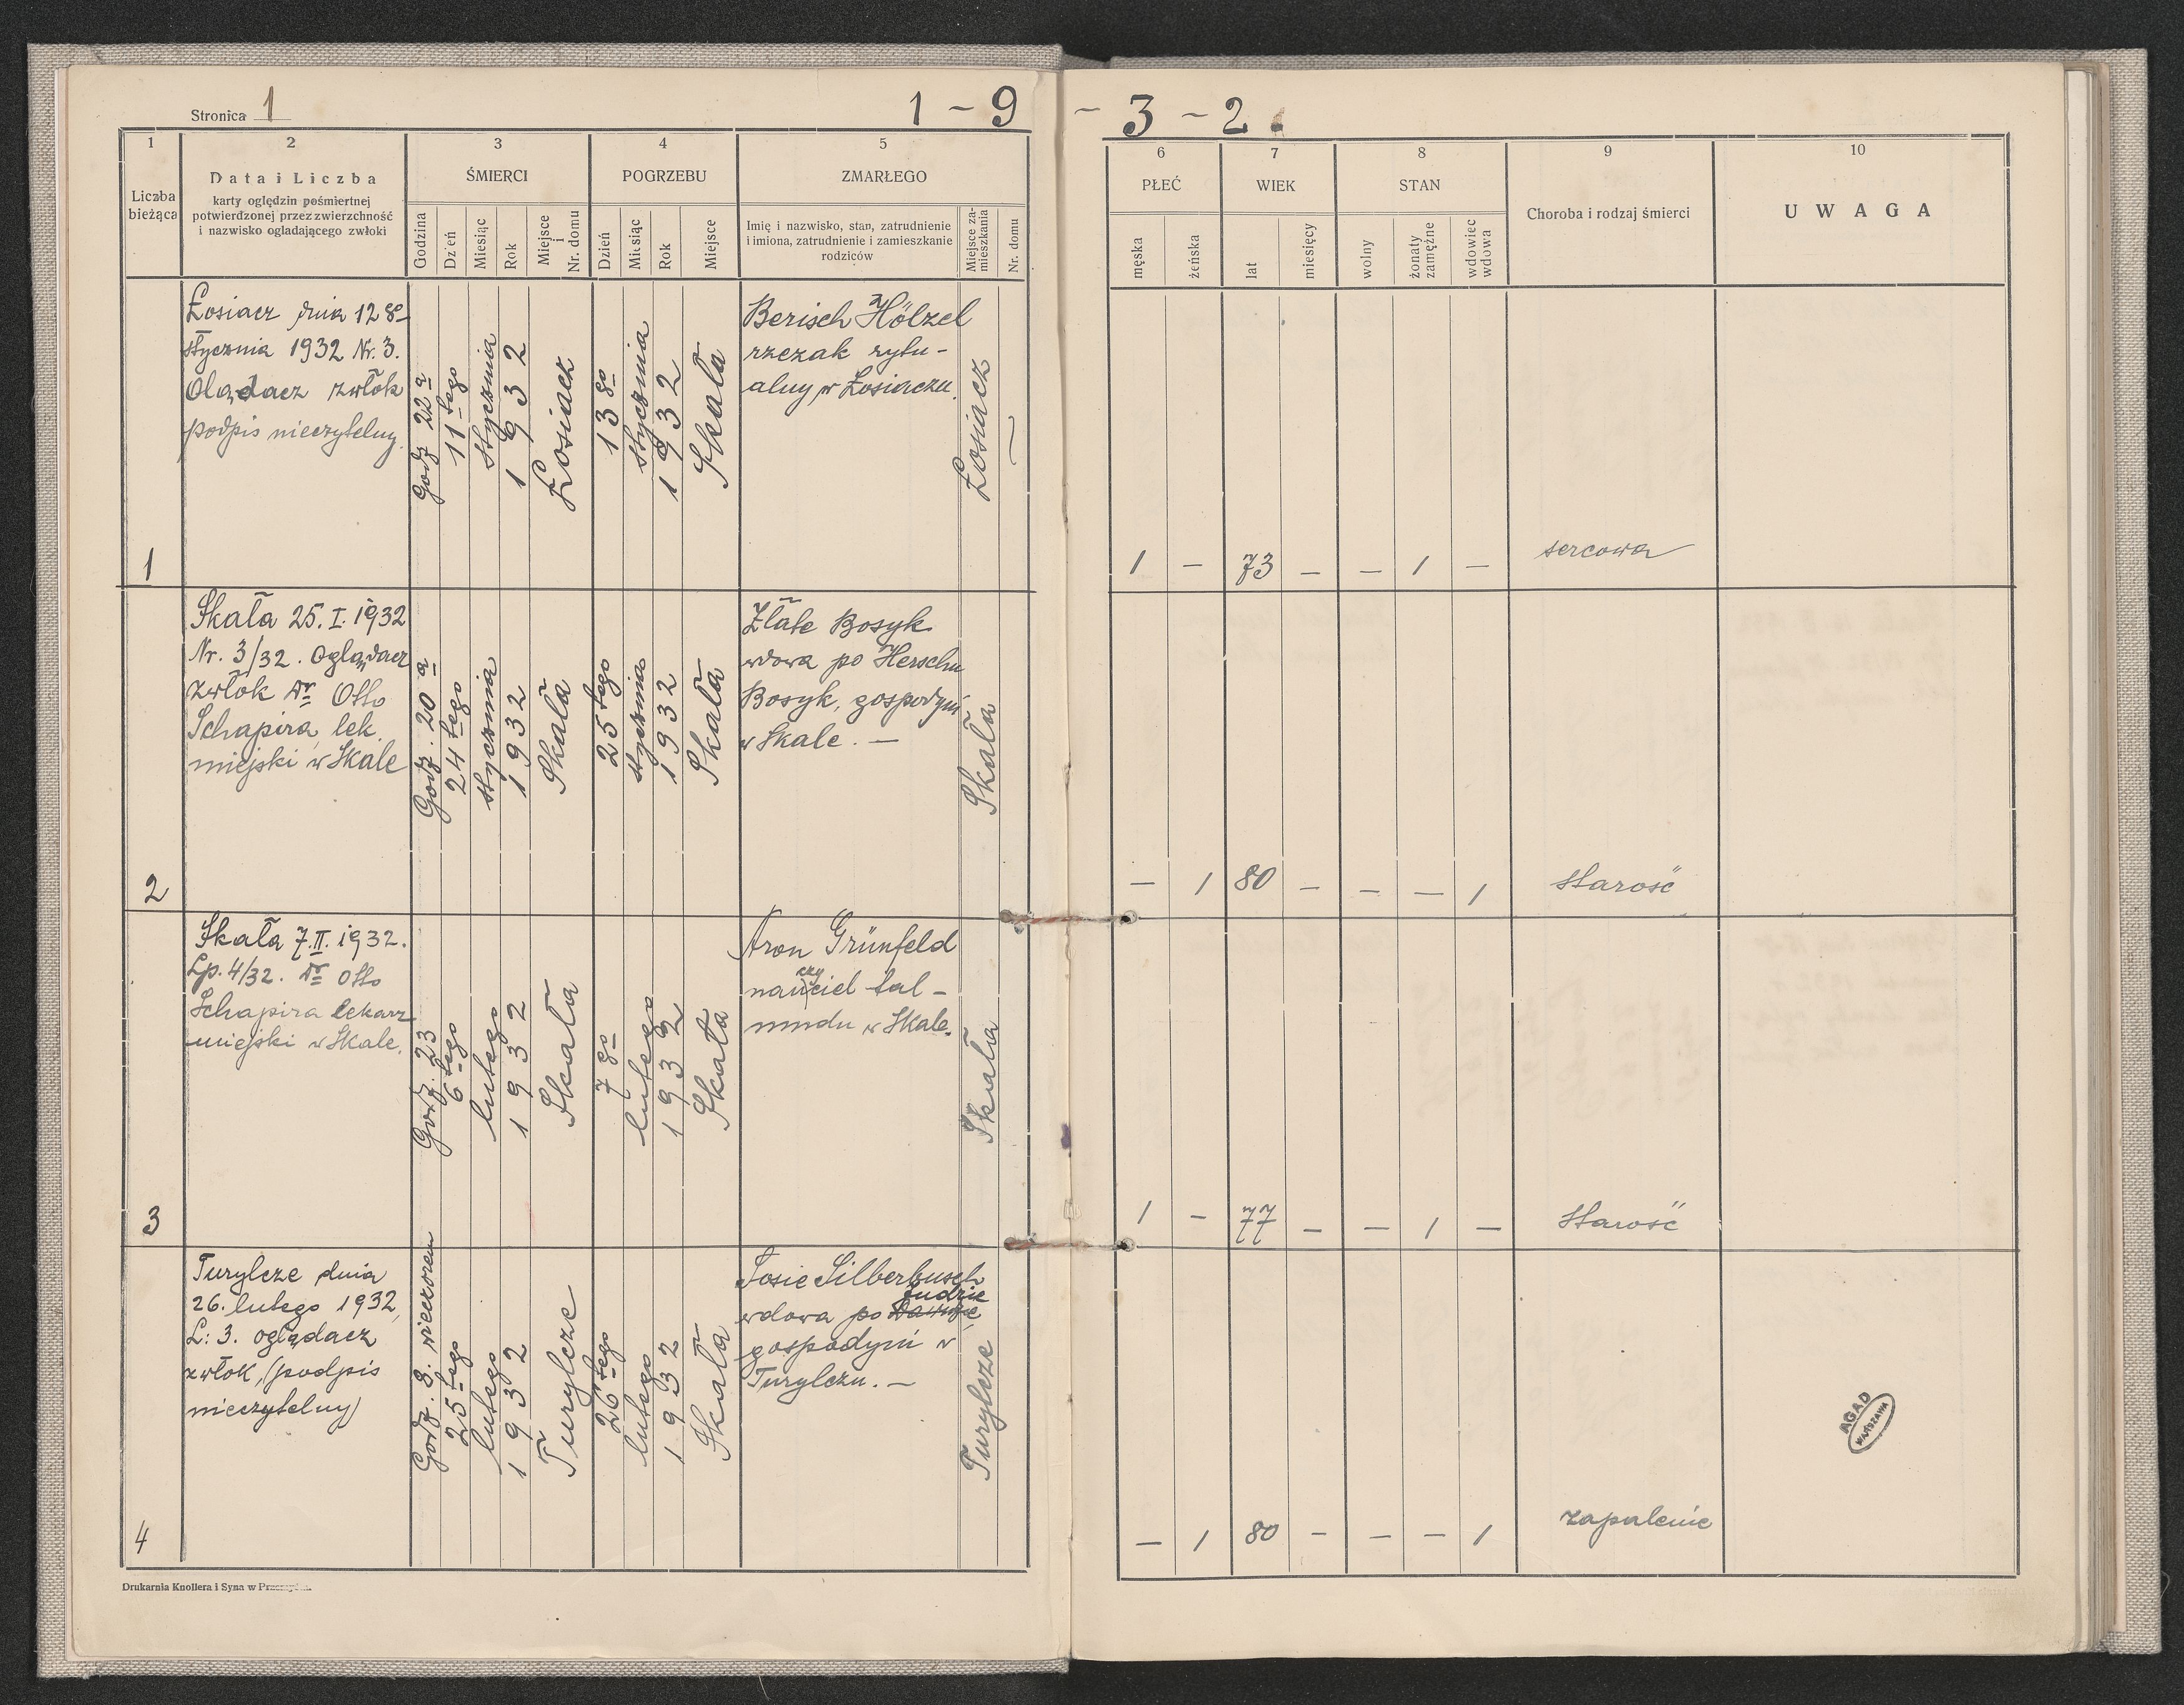 Stronica 1
1 - 9 - 3 - 2.
1
2
3
4
5
6
7
8
9
10
Liczba
bieżąca
Data i Liczba
karty oględzin pośmiertnej
potwierdzonej przez zwierzchność
i nazwisko oglądającego zwłoki
ŚMIERCI
Godzina
Dzień
Miesiąc
Rok
Miejsce
i
Nr. domu
POGRZEBU
Dzień
Miesiąc
Rok
Miejsce
ZMARŁEGO
Imię i nazwisko, stan, zatrudnienie
i imiona, zatrudnienie i zamieszkanie
rodziców
Miejsce za-
mieszkania
Nr. domu
PŁEĆ
męska
żeńska
WIEK
lat
miesięcy
STAN
wolny
żonaty
zamężne
wdowiec
wdowa
Choroba i rodzaj śmierci
UWAGA
1
Łosiacz dnia 12 go
stycznia 1932 Nr. 3.
Olądacz zwłok
podpis nieczytelny.
Godz 22 a
11 tego
stycznia
1932
Łosiacz
13 go
stycznia
1932
Skała
Berisch Hölzel
rzezak rytu-
alny w Łosiaczu.
Łosiacz
—
1 — 73 — — 1 —
sercowa
2
Skała 25. I. 1932
Nr. 3/32. Oglądacz
zwłok Dr Otto
Schapira, lek.
miejski w Skale
Godz. 20 a
24 tego
stycznia
1932
Skała
25 tego
stycznia
1932
Skała
Zlate Bosyk
wdowa po Herschu
Bosyk, gospodyni
w Skale. —
Skała
— 1 80 — — — 1
starość
3
Skała 7. II. 1932.
Lp. 4/32. Dr Otto
Schapira lekarz
miejski w Skale.
Godz. 23
6 tego
lutego
1932
Skała
7 go
lutego
1932
Skała
Aron Grünfeld
nauczyciel tal-
mudu w Skale.
Skała
1 — 77 — — 1 —
starość
4
Turylcze dnia
26. lutego 1932,
L: 3. oglądacz
zwłok, (podpis
nieczytelny)
Godz. 8. wieczorem
25 tego
lutego
1932
Turylcze
26 tego
lutego
1932
Skała
Sosie Silberbusch
Judzie
wdowa po
gospodyni w
Turylczu. —
Turylcze
— 1 80 — — — 1
zapalenie
AGAD
WARSZAWA
Drukarnia Knollera i Syna w